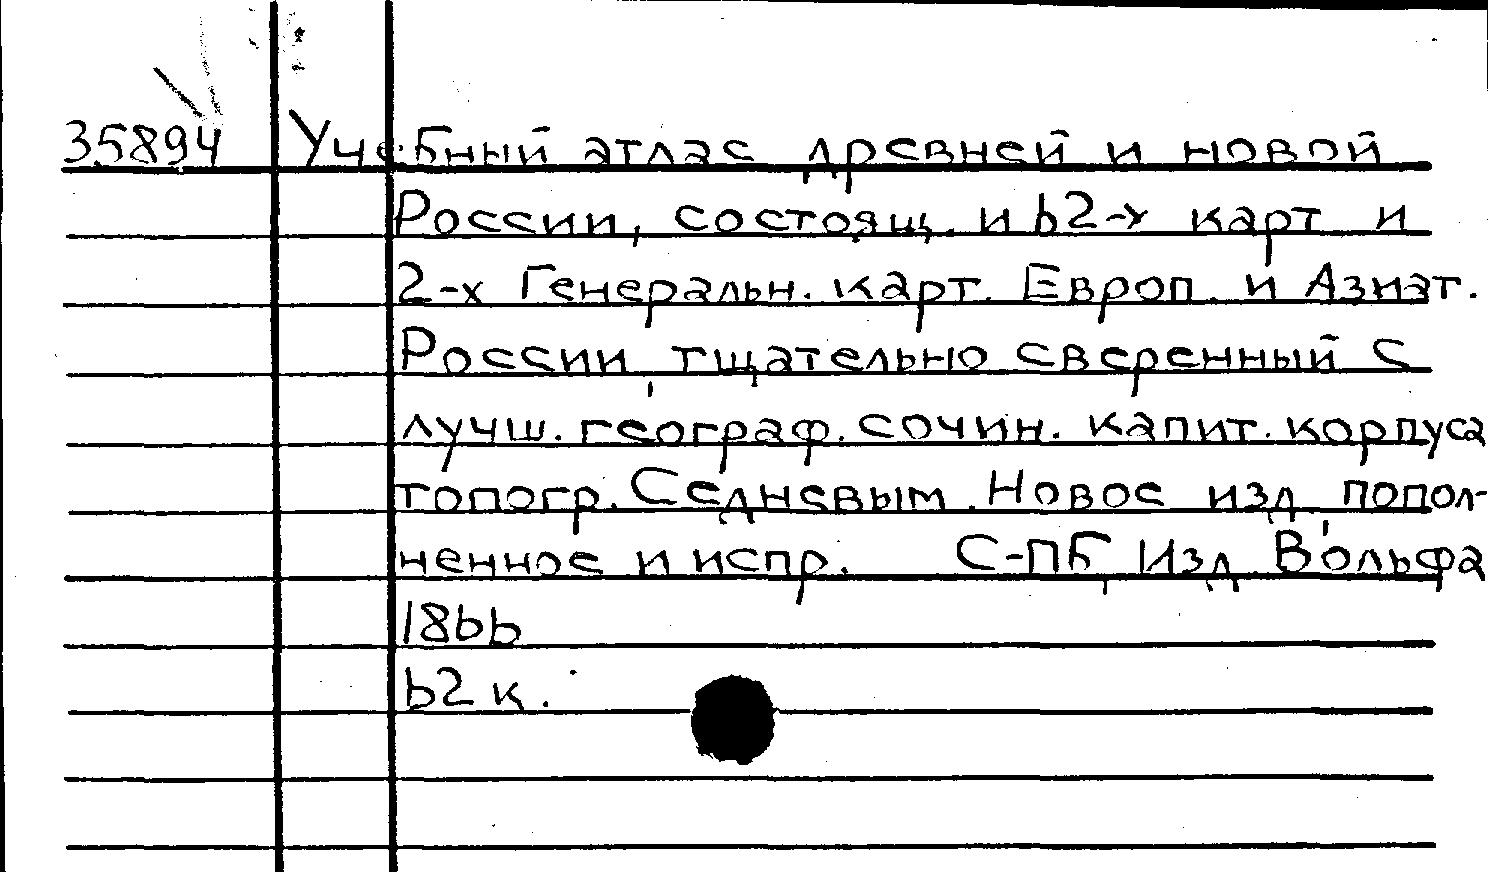 35894 Учебный атлас древней и новой
России, состоящ. и 62-х карт и
2-х Генеральн. карт. Европ. и Азиат.
России, тщательно сверенный с
лучш. географ. сочин. капит. корпуса
топогр. Седневым. Новое изд, попол-
ненное и испр. С-ПБ, Изд. Вольфа
1866
62 к.